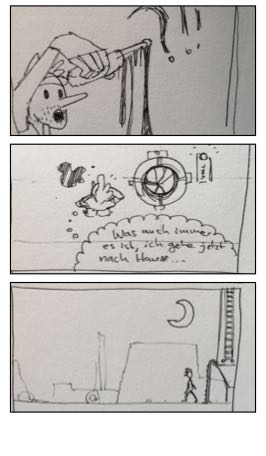 Was auch immer
es ist, ich gehe jetzt
nach Hause...